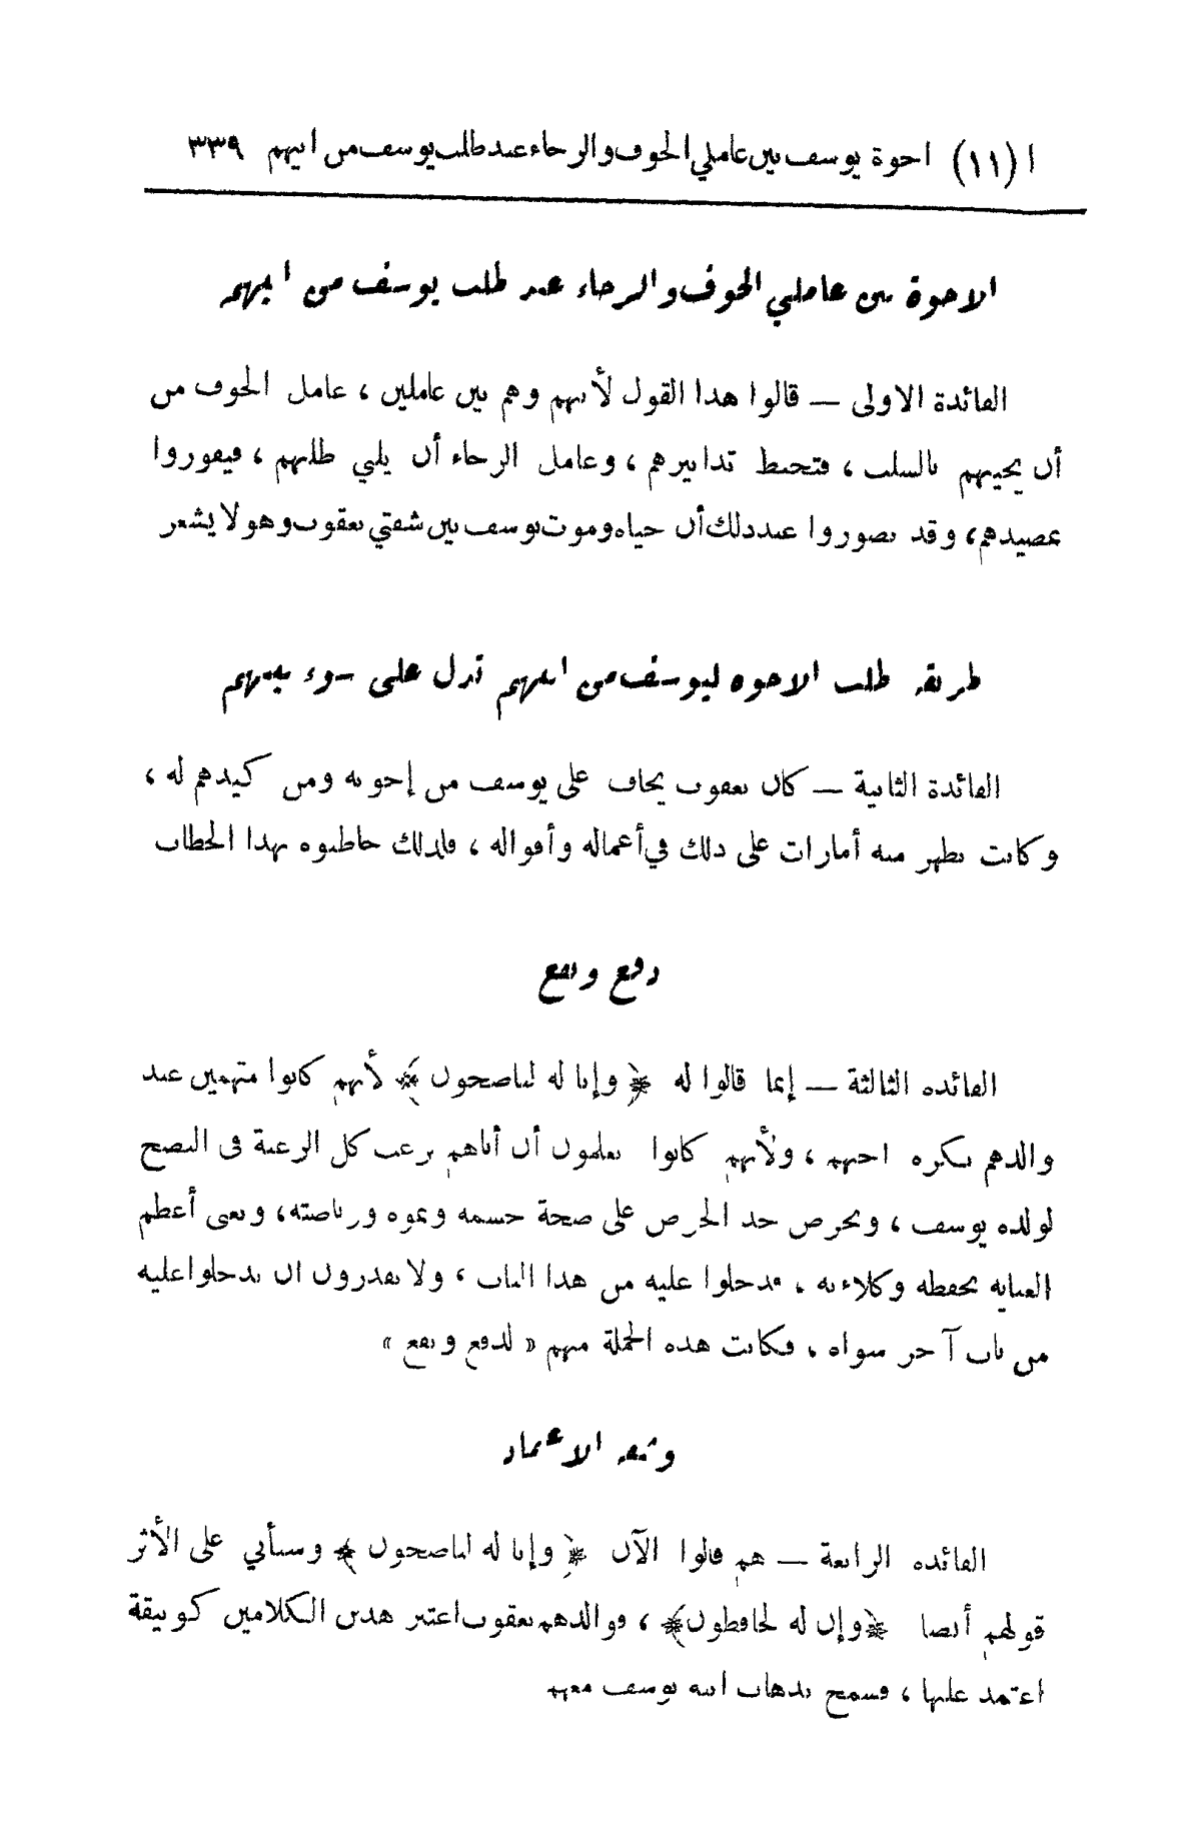 ا (١١) اخوة يوسف بين عاملي الخوف والرجاء عند طلب يوسف من ابيهم ٣٣٩
الاخوة بين عاملي الخوف والرجاء عند طلب يوسف من ابيهم
الفائدة الاولى — قالوا هذا القول لأنهم وهم بين عاملين ، عامل الخوف من
أن يجيبهم بالسلب ، فتحبط تدابيرهم ، وعامل الرجاء أن يلبي طلبهم ، فيفوزوا
بمصيدهم، وقد تصوروا عند ذلك أن حياة وموت يوسف بين شفتي يعقوب وهو لا يشعر
طريقة طلب الاخوة ليوسف من ابيهم تدل على سوء نيتهم
الفائدة الثانية — كان يعقوب يخاف على يوسف من إخوته ومن كيدهم له ،
وكانت تظهر منه أمارات على ذلك في أعماله وأقواله ، فلذلك خاطبوه بهذا الخطاب
دفع ونفع
الفائدة الثالثة — إنما قالوا له ﴿ وإنا له لناصحون ﴾ لأنهم كانوا متهمين عند
والدهم بكره اخيهم ، ولأنهم كانوا يعلمون أن أباهم يرغب كل الرغبة في النصح
لولده يوسف ، ويحرص جد الحرص على صحة جسمه ونموه ورياضته، ويعنى أعظم
العناية بحفظه وكلاءته ، فدخلوا عليه من هذا الباب ، ولا يقدرون ان يدخلوا عليه
من باب آخر سواه ، فكانت هذه الجملة منهم « لدفع ونفع »
وثيقة الاعتماد
الفائدة الرابعة — هم قالوا الآن ﴿ وإنا له لناصحون ﴾ وسيأتي على الأثر
قولهم أيضا ﴿وإنا له لحافظون﴾ ، فوالدهم يعقوب اعتبر هذين الكلامين كوثيقة
اعتمد عليها ، فسمح بذهاب ابنه يوسف معهم